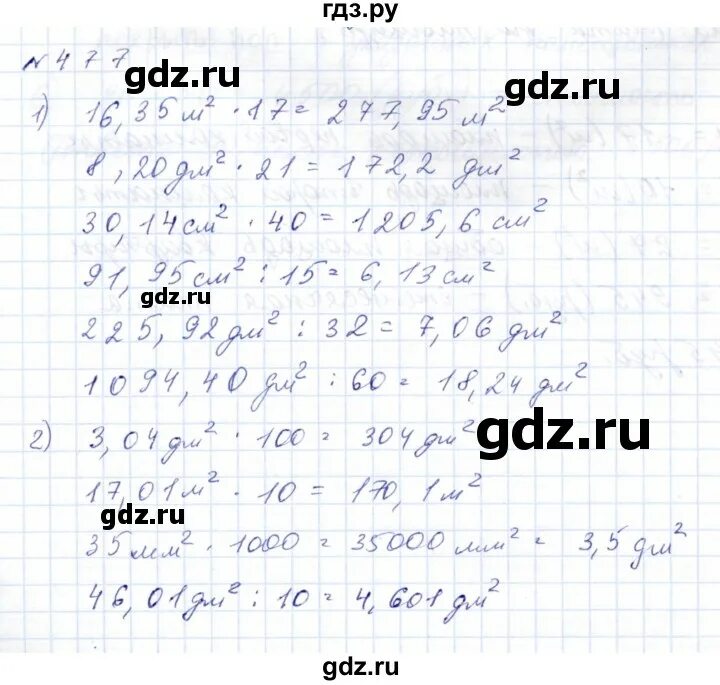 гдз.ру
№477
gdz.ru
1) 16,35 м² · 17 = 277,95 м²
8,20 дм² · 21 = 172,2 дм²
30,14 см² · 40 = 1205,6 см²
91,95 см² : 15 = 6,13 см²
gdz.ru
225,92 дм² : 32 = 7,06 дм²
1094,40 дм² : 60 = 18,24 дм²
2) 3,04 дм² · 100 = 304 дм²
gdz.ru
17,01 м² · 10 = 170,1 м²
gdz.ru
35 мм² · 1000 = 35000 мм² = 3,5 дм²
46,01 дм² : 10 = 4,601 дм²
gdz.ru